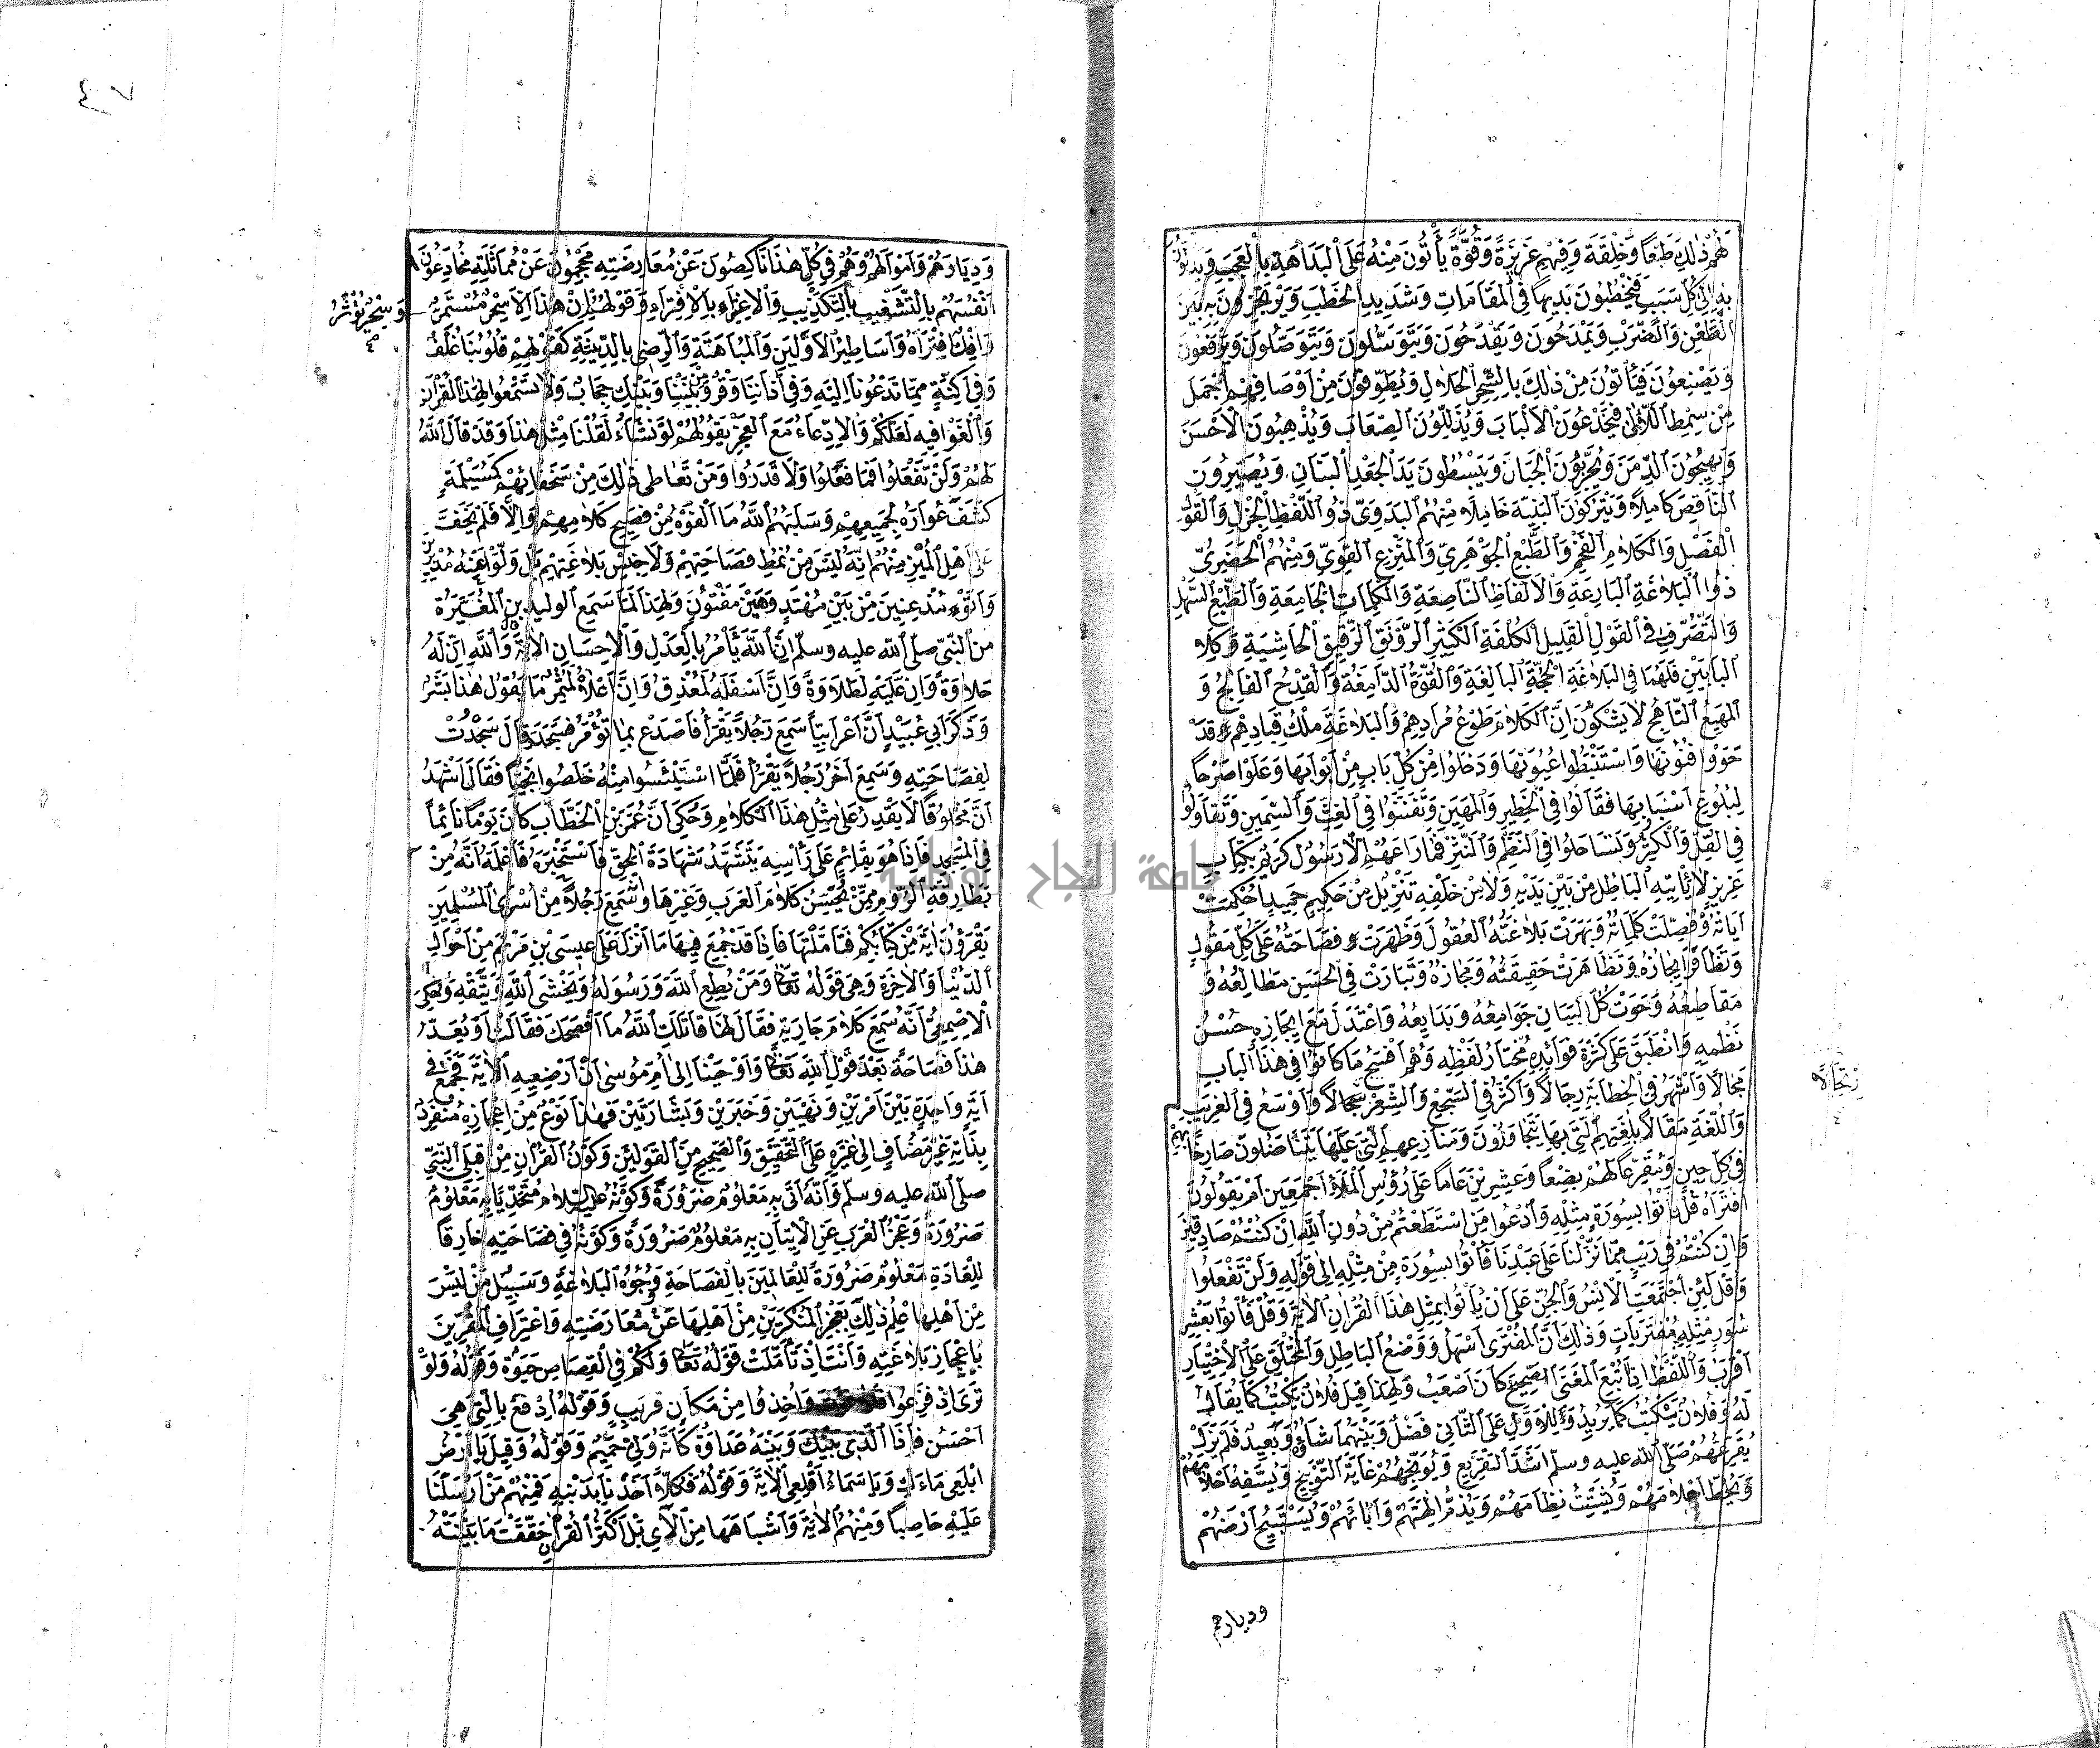 لهم ذلك طبعا وخلقة وفيهم غريزة وقوة يأتون منه على البداهة بالعجب ويدلون
به الى كل سبب فيخطبون بديها في المقامات وشديد الخطب ويرتجزون به بين
الطعن والضرب ويمدحون ويقدحون ويتوسلون ويتوصلون ويرفعون
ويضعون فيأتون من ذلك بالسحر الحلال ويطوقون من اوصافهم اجمل
من سمط اللآلى فيخدعون الالباب ويذللون الصعاب ويذهبون الاحسن
ويهيجون الدمن ويجرؤن الجبان ويبسطون يد الجعد البنان ويصيرون
الناقص كاملا ويتركون النبيه خاملا منهم البدوي ذو اللفظ الجزل والقول
الفصل والكلام الفخم والطبع الجوهري والمنزع القوي ومنهم الحضري
ذوا البلاغة البارعة والالفاظ الناصعة والكلمات الجامعة والطبع السهل
والتصرف في القول القليل الكلفة الكثير الرونق الرقيق الحاشية وكلا
البابين فلهما في البلاغة الحجة البالغة والقوة الدامغة والقدح الفالج و
المهيع الناهج لا يشكون ان الكلام طوع مرادهم والبلاغة ملك قيادهم قد
حووا فنونها واستنبطوا عيونها ودخلوا من كل باب من ابوابها وعلوا صرحا
لبلوغ اسبابها فقالوا في الخطير والمهين وتفننوا في الغث والسمين وتقاولوا
في القل والكثر وتساجلوا في النظم والنثر فما راعهم الا رسول كريم بكتاب
عزيز لا يأتيه الباطل من بين يديه ولا من خلفه تنزيل من حكيم حميد احكمت
آياته وفصلت كلماته وبهرت بلاغته العقول وظهرت فصاحته على كل مقول
وتظافر ايجازه وتظاهرت حقيقته ومجازه وتبارت في الحسن مطالعه و
مقاطعه وحوت كل البيان جوامعه وبدايعه واعتدل مع ايجازه حسن
نظمه وانطبق على كثرة فوائده مختار لفظه وهم افسح ما كانوا في هذا الباب
مجالا واشهر في الخطابة رجالا واكثر في السجع والشعر سجالا واوسع في الغريب
واللغة مقالا بلغتهم التي بها يتحاورون ومنازعهم التي عليها يتناضلون صارخا بهم
في كل حين ومقرعا لهم بضعا وعشرين عاما على رؤس الملأ اجمعين ام يقولون
افتراه قل فأتوا بسورة مثله وادعوا من استطعتم من دون الله ان كنتم صادقين
وان كنتم في ريب مما نزلنا على عبدنا فأتوا بسورة من مثله الى قوله ولن تفعلوا
وقل لئن اجتمعت الانس والجن على ان يأتوا بمثل هذا القرآن الاية وقل فأتوا بعشر
سور مثله مفتريات وذلك ان المفترى اسهل ووضع الباطل والمختلق على الاختيار
اقرب واللفظ اذا تبع المعنى الصحيح كان اصعب ولهذا قيل فلان يكتب كما يقال
له وفلان يكتب كما يريد وللاول على الثاني فضل وبينهما شأو بعيد فلم يزل
يقرعهم صلى الله عليه وسلم اشد التقريع ويوبخهم غاية التوبيخ ويسفه احلامهم
ويحط اعلامهم ويشتت نظامهم ويذم الهتهم وآبائهم ويستبيح ارضهم
وديارهم
وديارهم واموالهم وهم في كل هذا ناكصون عن معارضته محجمون عن مماثلته مخادعون
انفسهم بالتشغيب بالتكذيب والاغراء بالافتراء وقولهم ان هذا الا سحر مستمر
وسحر يؤثر
وافك افتراه واساطير الاولين والمباهتة والرضى بالدنيئة كقولهم قلوبنا غلف
وفي اكنة مما تدعونا اليه وفي آذاننا وقر ومن بيننا وبينك حجاب ولا تسمعوا لهذا القرآن
والغوا فيه لعلكم والادعاء مع العجز بقولهم لو نشاء لقلنا مثل هذا وقد قال الله
لهم ولن تفعلوا فما فعلوا ولا قدروا ومن تعاطى ذلك من سخفائهم كمسيلمة
كشف عواره لجميعهم وسلبهم الله ما الفوه من فصيح كلامهم والا فلم يخف
على اهل الميز منهم انه ليس من نمط فصاحتهم ولا جنس بلاغتهم بل ولوا عنه مدبرين
واتوا مذعنين من بين مهتد وبين مفتون ولهذا لما سمع الوليد بن المغيرة
من النبي صلى الله عليه وسلم ان الله يأمر بالعدل والاحسان الاية قال والله ان له
حلاوة وان عليه لطلاوة وان اسفله لمغدق وان اعلاه لمثمر ما يقول هذا بشر
وذكر ابي عبيد ان اعرابيا سمع رجلا يقرأ فاصدع بما تؤمر فسجد وقال سجدت
لفصاحته وسمع آخر رجلا يقرأ فلما استيئسوا منه خلصوا نجيا فقال اشهد
ان مخلوقا لا يقدر على مثل هذا الكلام وحكى ان عمر بن الخطاب كان يوما نائما
في المسجد فاذا هو بقائم على رأسه يتشهد شهادة الحق فاستخبره فاعلمه انه من
بطارقة الروم ممن يحسن كلام العرب وغيرها وسمع رجلا من اسرى المسلمين
يقرؤن آية من كتابكم فتأملتها فاذا قد جمع فيها ما انزل على عيسى بن مريم من احوال
الدنيا والآخرة وهي قوله تعالى ومن يطع الله ورسوله ويخشى الله ويتقه وحكى
الاصمعي انه سمع كلام جارية فقال لها قاتلك الله ما افصحك فقالت او يعد
هذا فصاحة بعد قول الله تعالى واوحينا الى ام موسى ان ارضعيه الاية فجمع في
آية واحدة بين امرين ونهيين وخبرين وبشارتين فهذا نوع من اعجازه منفرد
بذاته غير مضاف الى غيره على التحقيق والصحيح من القولين وكون القرآن من قبل النبي
صلى الله عليه وسلم وانه اتى به معلوم ضرورة وكونه عليه السلام متحديا به معلوم
ضرورة وعجز العرب عن الاتيان به معلوم ضرورة وكونه في فصاحته خارقا
للعادة معلوم ضرورة للعالمين بالفصاحة ووجوه البلاغة وسبيل من ليس
من اهلها علم ذلك بعجز المنكرين من اهلها عن معارضته واعتراف المقرين
باعجاز بلاغته وانت اذ تأملت قوله تعالى ولكم في القصاص حيوة وقوله ولو
ترى اذ فزعوا فلا فوت واخذوا من مكان قريب وقوله ادفع بالتي هي
احسن فاذا الذي بينك وبينه عداوة كأنه ولي حميم وقوله وقيل يا ارض
ابلعي ماءك ويا سماء اقلعي الاية وقوله فكلا اخذنا بذنبه فمنهم من ارسلنا
عليه حاصبا ومنهم الاية واشباهها من الآي بل اكثر القرآن حققت ما بينته
جامعة النجاح الوطنية